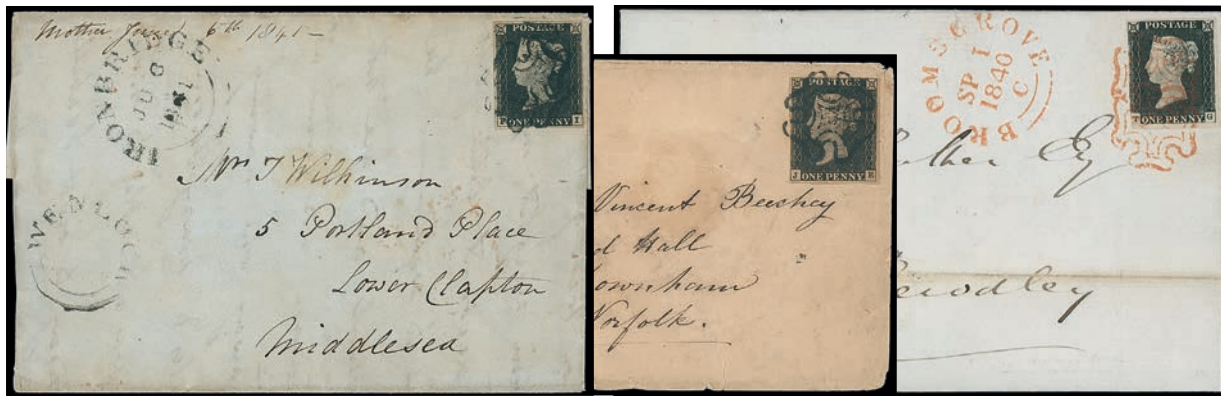 Mother June 6th 1841
IRONBRIDGE
JU 6
1841
POSTAGE
ONE PENNY
WENLOCK
Mr J Wilkinson
5 Portland Place
Lower Clapton
Middlesea
POSTAGE
J ONE PENNY E
Vincent Beechey
d Hall
ownham
Norfolk.
BROMSGROVE
SP 1
1840
C
POSTAGE
T ONE PENNY G